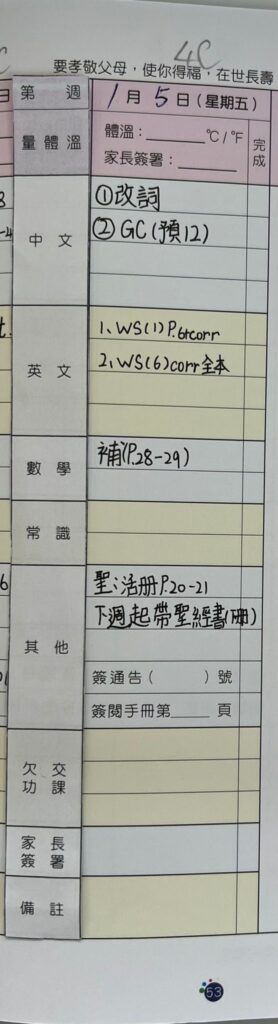 4C
要孝敬父母，使你得福，在世長壽
第 週
1月5日（星期五）
量體溫
體溫：______°C/°F
家長簽署：______
完成
中文
①改詞
②GC(預12)
英文
1、WS(1)P.6rcorr
2、WS(6)corr全本
數學
補(P.28-29)
常識
其他
聖：活册P.20-21
下週起帶聖經書(1冊)
簽通告（ ）號
簽閱手冊第____頁
欠交
功課
家長
簽署
備註
53